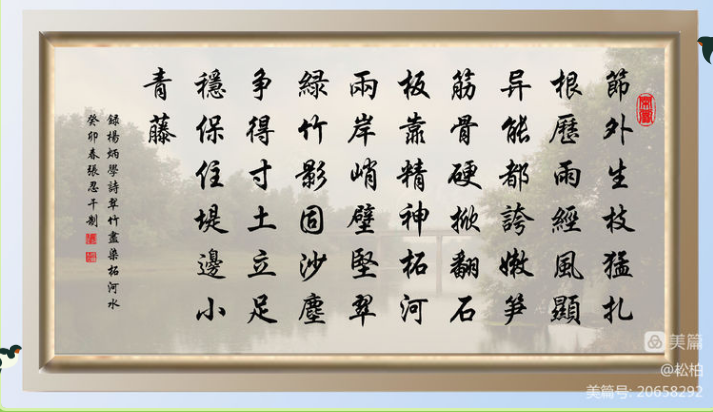 節外生枝猛扎
根歷雨經風顯
异能都誇嫩笋
筋骨硬掀翻石
板靠精神拓河
兩岸峭壁堅翠
綠竹影固沙塵
争得寸土立足
穩保住堤邊小
青藤
録楊炳學詩翠竹盡染拓河水
癸卯春張忍千制
美篇
@松柏
美篇号: 20658292